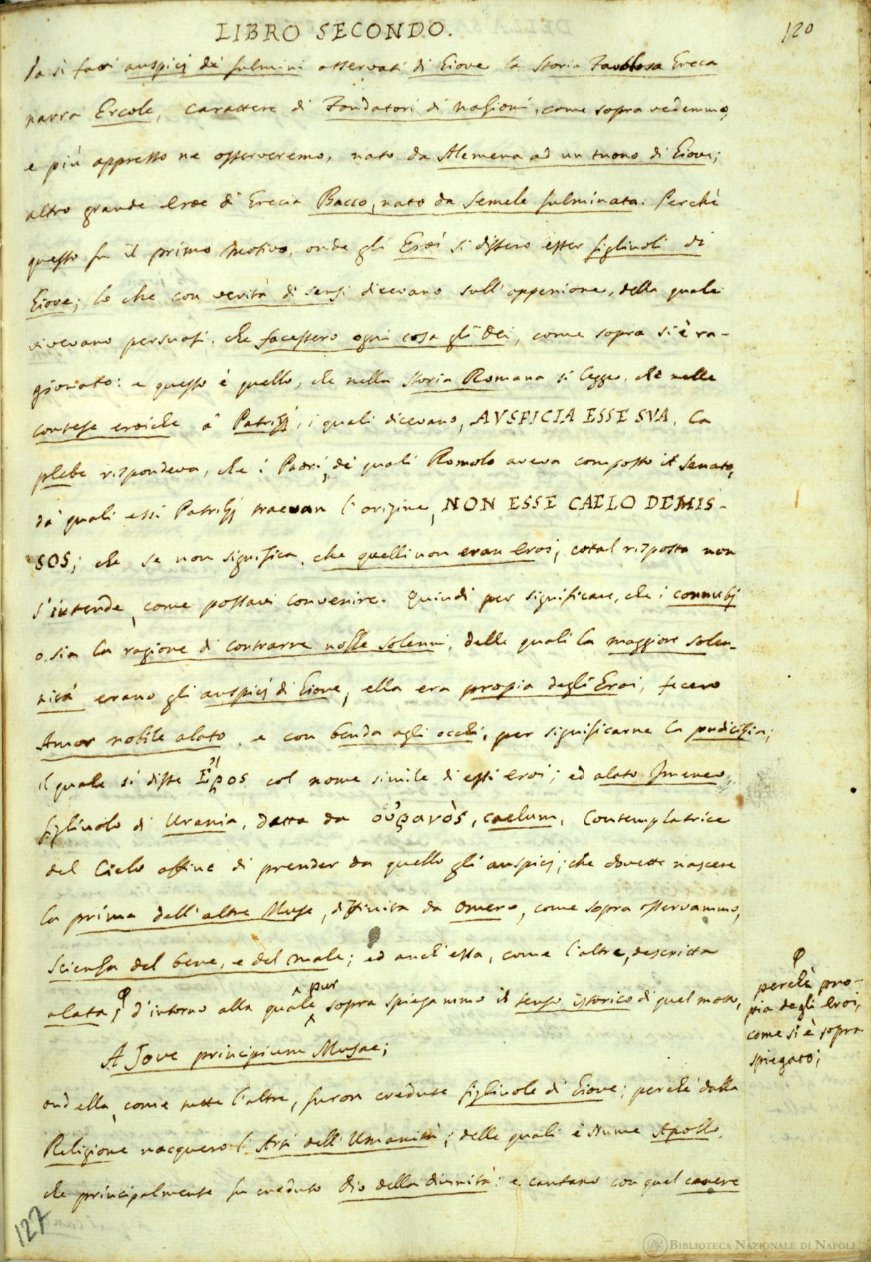 LIBRO SECONDO.
120
da sì fatti auspicj de' fulmini osservati di Giove la Storia Favolosa Greca
narra Ercole, carattere di Fondatori di nazioni, come sopra vedemmo,
e più appresso ne osserveremo, nato da Alcmena ad un tuono di Giove;
altro grande Eroe di Grecia Bacco, nato da Semele fulminata. Perchè
questo fu il primo motivo, onde gli Eroi si dissero esser figliuoli di
Giove; lo che con verità di sensi dicevano sull'oppenione, della quale
vivevano persuasi, che facessero ogni cosa gli Dei, come sopra si è ra-
gionato: e questo è quello, che nella Storia Romana si legge, che nelle
contese eroiche a' Patrizj, i quali dicevano, AUSPICIA ESSE SUA, la
plebe rispondeva, che i Padri, de' quali Romolo aveva composto il Senato,
da' quali essi Patrizj traevan l'origine, NON ESSE CAELO DEMIS-
SOS; che se non significa, che quelli non eran Eroi, cotal risposta non
s'intende, come possavi convenire. Quindi per significare, che i connubj
o sia la ragione di contrarre nozze solenni, delle quali la maggiore solen-
nità erano gli auspicj di Giove, ella era propia degli Eroi, fecero
Amor nobile alato, e con benda agli occhi, per significarne la pudicizia;
il quale si disse Ἔρος col nome simile di essi Eroi; ed alato Imeneo,
figliuolo di Urania, detta da οὐρανὸς, caelum, Contemplatrice
del Cielo affine di prender da quello gli auspicj; che dovette nascere
la prima dell'altre Muse, diffinita da Omero, come sopra osservammo,
Scienza del bene, e del male; ed anch'essa, come l'altre, descritta
alata, φ d'intorno alla quale pur sopra spiegammo il senso istorico di quel motto,
φ
perchè pro-
pia degli Eroi,
come si è sopra
spiegato;
A Jove principium Musae;
ond'ella, come tutte l'altre, furon credute figliuole di Giove; perchè dalla
Religione nacquero l'Arti dell'Umanità; delle quali è Nume Apollo,
che principalmente fu creduto Dio della divinità: e cantano con quel canere
127
BIBLIOTECA NAZIONALE DI NAPOLI